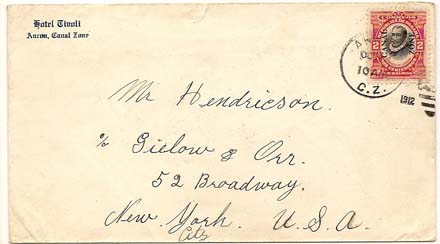 Hotel Tivoli
Ancon, Canal Zone
2 2
10 A
C. Z.
1912
Mr Hendricson.
℅ Gielow & Orr.
52 Broadway.
New York. U. S. A.
City